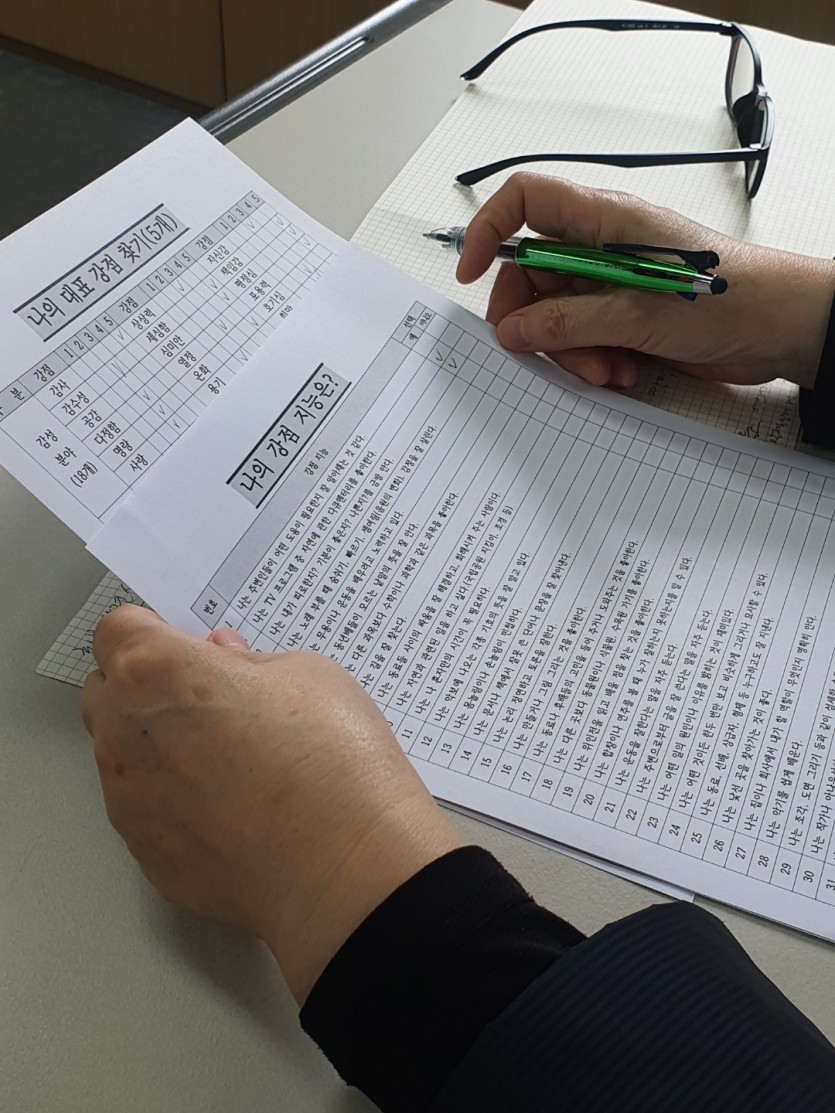 나의 대표 강점 찾기(5개)
분 강점 1 2 3 4 5 강점 1 2 3 4 5 강점 1 2 3 4 5
감성 분야 (18개)
감사 상상력 자신감
감수성 세심함 책임감
공감 심미안 평정심
다정함 열정 포용력
명랑 온화 호기심
사랑 용기 희망
나의 강점 지능은?
번호 강점 지능 선택
예 아니오
1 나는 주변인들이 어떤 도움이 필요한지 잘 알아채는 것 같다.
나는 TV 프로그램 중 자연에 관한 다큐멘터리를 좋아한다.
나는 내가 피로한지? 기분이 좋은지? 나쁜지?를 금방 안다.
나는 노래 부를 때 숨쉬기, 빠르기, 셈여림(음원의 변화), 감정을 잘 살린다.
나는 무용이나 운동을 배우려고 노력하고 있다.
동년배들이 모르는 낱말의 뜻을 잘 안다.
는 다른 과목보다 수학이나 과학과 같은 과목을 좋아한다.
나는 길을 잘 찾는다.
나는 동료들 사이의 싸움을 잘 해결하고, 화해시켜 주는 사람이다.
나는 자연과 관련된 일을 하고 싶다.(국립공원 지킴이, 조경 등)
11 나는 나 혼자만의 시간이 꼭 필요하다.
12 나는 악보에 나오는 각종 기호의 뜻을 잘 알고 있다.
13 나는 몸놀림이나 손놀림이 민첩하다.
14 나는 문서나 책에서 잘못 쓴 단어나 문장을 잘 찾아낸다.
15 나는 논리 정연하고, 토론을 잘한다.
16 나는 만들거나 그림 그리는 것을 좋아한다.
17 나는 동료나 후배들의 고민을 들어 주거나 도와주는 것을 좋아한다.
18 나는 다른 곳보다 동물원이나 식물원, 수목원 가기를 좋아한다.
19 나는 위인전을 읽고 배울 점을 찾는 것을 좋아한다.
20 나는 합창이나 연주를 볼 때 누가 잘하는지 못하는지를 알 수 있다.
21 나는 운동을 잘한다는 말을 자주 듣는다.
22 나는 주변으로부터 글을 잘 쓴다는 말을 자주 듣는다.
23 나는 어떤 일의 원인이나 이유를 밝히는 것이 재미있다.
24 나는 어떤 것이든 한두 번만 보고 비슷하게 그리거나 묘사할 수 있다.
25 나는 동료, 선배, 상급자, 형제 등 누구하고도 잘 지낸다.
26 나는 낯선 곳을 찾아가는 것이 좋다.
27 나는 집이나 회사에서 내가 할 역할이 무엇인지 명확히 안다.
28 나는 악기를 쉽게 배운다.
29 나는 조각, 도면 그리기 등과 같이 섬세
30 나는 작가나 아나운서
31